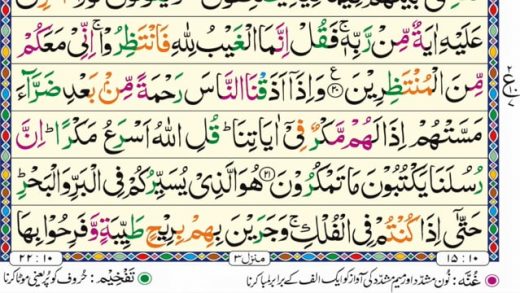 عَلَيْهِ اٰيَةٌ مِّنْ رَّبِّهٖ ۚ فَقُلْ اِنَّمَا الْغَيْبُ لِلّٰهِ فَانْتَظِرُوْا ۚ اِنِّيْ مَعَكُمْ
مِّنَ الْمُنْتَظِرِيْنَ ﴿۲۰﴾ ع وَاِذَاۤ اَذَقْنَا النَّاسَ رَحْمَةً مِّنْۢ بَعْدِ ضَرَّآءَ
مَسَّتْهُمْ اِذَا لَهُمْ مَّكْرٌ فِيْۤ اٰيَاتِنَا ؕ قُلِ اللّٰهُ اَسْرَعُ مَكْرًا ؕ اِنَّ
رُسُلَنَا يَكْتُبُوْنَ مَا تَمْكُرُوْنَ ﴿۲۱﴾ هُوَ الَّذِيْ يُسَيِّرُكُمْ فِي الْبَرِّ وَالْبَحْرِ ؕ
حَتّٰۤى اِذَا كُنْتُمْ فِي الْفُلْكِ ۚ وَجَرَيْنَ بِهِمْ بِرِيْحٍ طَيِّبَةٍ وَّفَرِحُوْا بِهَا
۱۵ : ۱۰ منزل ۳ ۲۲ : ۱۰
غُنَّه : نُون مشدّد اور میم مشدّد کی آواز کو ایک الف کے برابر لمبا کرنا تَفْخِيْم : حُروف کو پُر یعنی موٹا کرنا